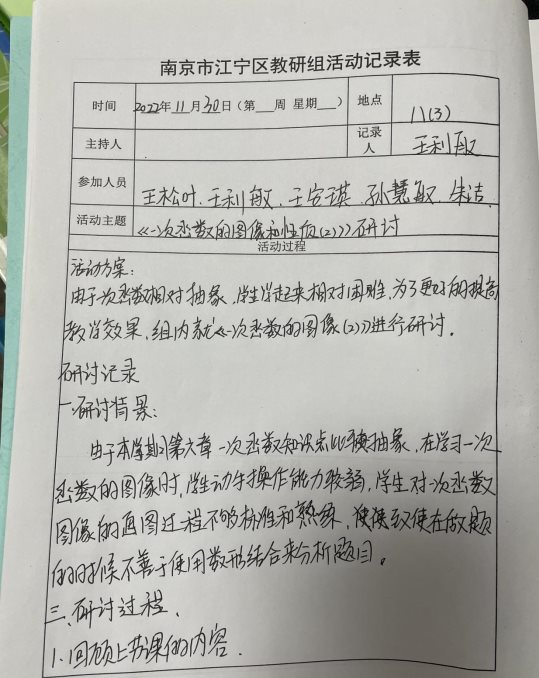 南京市江宁区教研组活动记录表
时间 2022年11月30日（第___周 星期___） 地点 11(3)
主持人 记录人 王利敏
参加人员 王松叶、王利敏、王安琪、孙慧敏、朱洁.
活动主题 《一次函数的图像和性质(2)》研讨
活动过程
活动方案：
由于一次函数相对抽象,学生学起来相对困难,为了更好的提高
教学效果,组内就《一次函数的图像(2)》进行研讨.
研讨记录
一.研讨背景:
由于本学期第六章一次函数知识点比较抽象,在学习一次
函数的图像时,学生动手操作能力较弱,学生对一次函数
图像的画图过程不够标准和熟练,致使在做题
的时候不善于使用数形结合来分析题目.
三、研讨过程.
1.回顾上节课的内容.